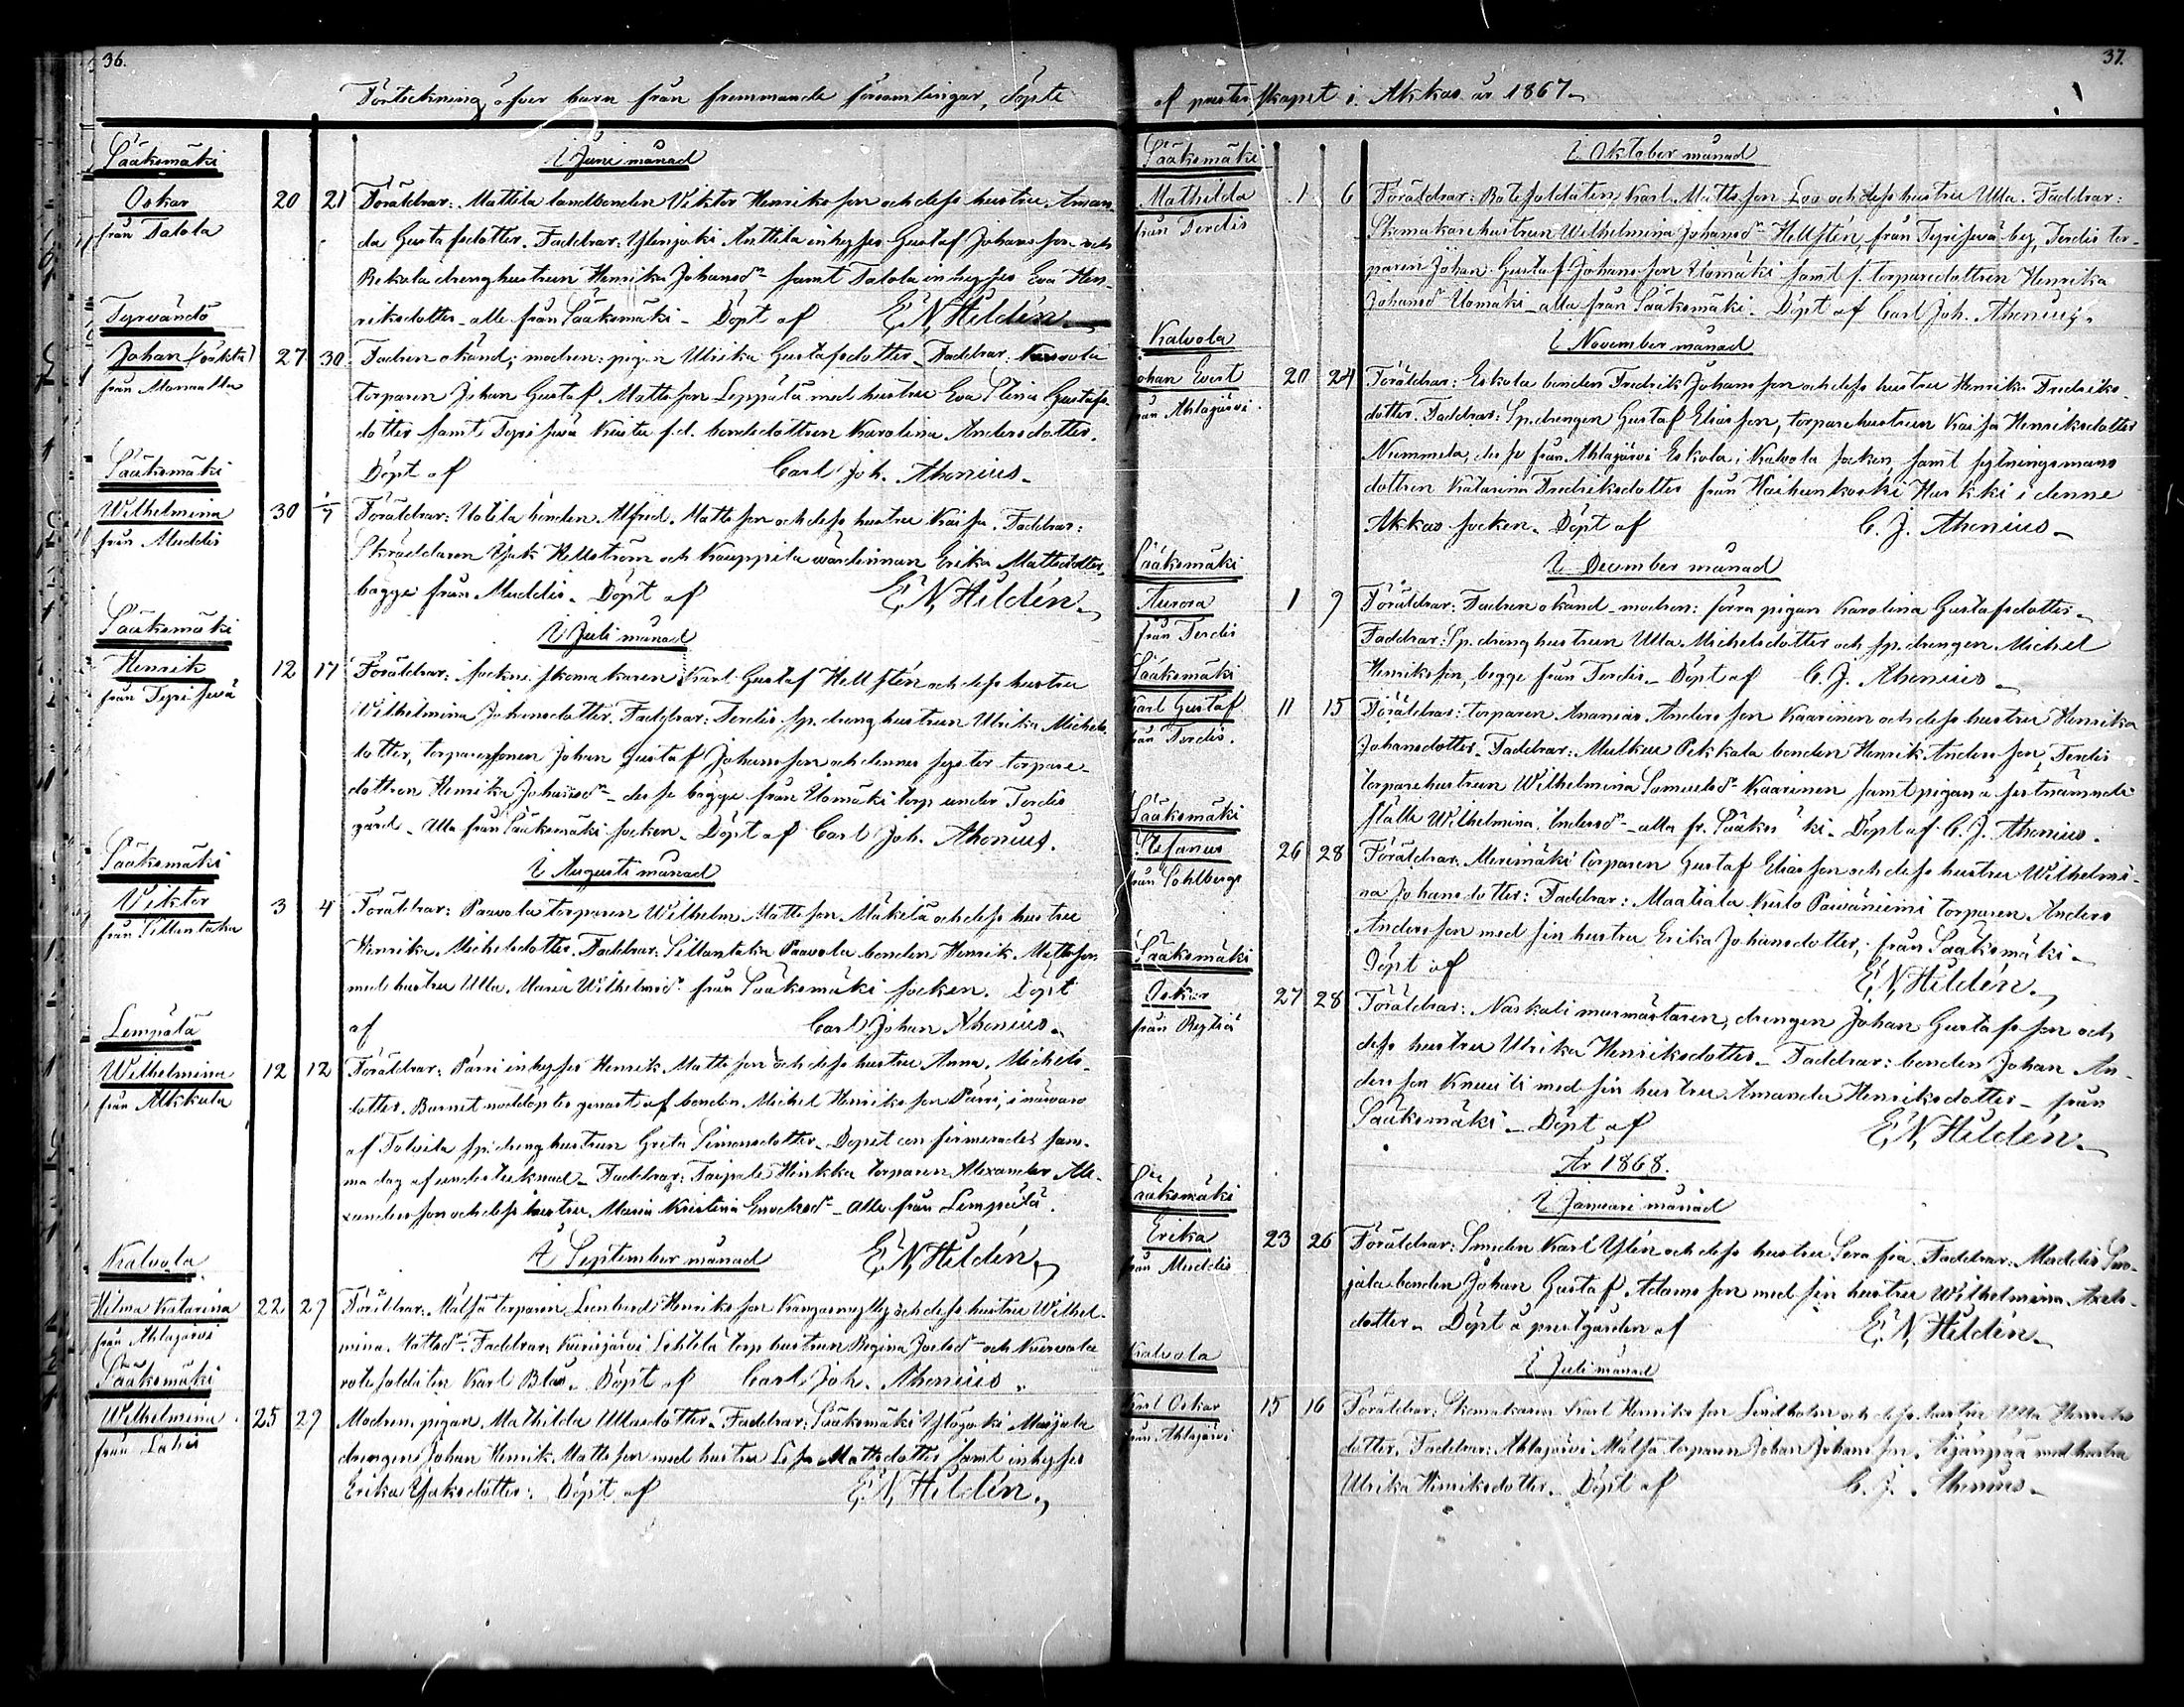 36.
Förteckning öfver barn från fremmande församlingar, döpte
Sääksmäki
I Juni månad
Oskar 20 21 Föräldrar: Mattila landbonden Viktor Henriksson och dess hustru Aman-
från Talola
da Gustafsdotter. Faddrar: Anttila inhyses Gustaf Johansson och
drenghustrun Henrika Johansdr samt Talola inhyses Eva Hen-
riksdotter - alle från Sääksmäki - Döpt af E. N. Hildén.
Tyrväntö
Johan (oäkta) 27 30 Fadren okänd; modren: pigan Ulrika Gustafsdotter. Faddrar:
från
torparen Johan Gustaf Mattsson Leppälä med hustru Eva Stina Gustafs-
dotter samt f.d. bondedottren Karolina Andersdotter.
Döpt af Carl Joh. Athenius.
Sääksmäki
Wilhelmina 30 1/7 Föräldrar: Uotila bonden Alfred Mattsson och dess hustru Kaisa. Faddrar:
från Muddis
Skräddaren Isak Hellström och Kauppila wärdinnan Erika Mattsdotter,
bägge från Muddis. Döpt af E. N. Hildén.
Sääksmäki
I Juli månad
Henrik 12 17 Föräldrar: sockne skomakaren Karl Gustaf Hellstén och dess hustru
från
Wilhelmina Johansdotter. Faddrar: Terdis sp. drenghustrun Ulrika Michels-
dotter, torparesonen Johan Gustaf Johansson och dennes syster torpare-
dottren Henrika Johansdr - desse bägge från Uomäki torp under Terdis
gård - Alla från Sääksmäki socken. Döpt af Carl Joh. Athenius.
Sääksmäki
I Augusti månad
Viktor 3 4 Föräldrar: Paavola torparen Wilhelm Mattsson Mäkelä och dess hustru
från Sillantaka
Henrika Michelsdotter. Faddrar: Sillantaka Paavola bonden Henrik Mattsson
med hustru Ulla Maria Wilhelmsdr från Sääksmäki socken. Döpt
af Carl Johan Athenius.
Lempälä
Wilhelmina 12 12 Föräldrar: Pärri inhyses Henrik Mattsson och dess hustru Anna Michels-
från Alkkula
dotter. Barnet nöddöptes genast af bonden Michel Henriksson Pärri, i närvaro
af sp. drenghustrun Greta Simonsdotter. Dopet confirmerades sam-
ma dag af undertecknad. Faddrar: torparen Alexander Ale-
xandersson och dess hustru Maria Kristina Enocksdr - alla från Lempälä.
I September månad E. N. Hildén.
Kalvola
Hilma Katarina 22 29 Föräldrar: Mälsä torparen Leonhard Henriksson och dess hustru Wilhel-
från Ahlajärvi
mina Mattsdr. Faddrar: torp hustrun Regina Joelsdr och
rotesoldaten Karl Blå. Döpt af Carl Joh. Athenius.
Sääksmäki
Wilhelmina 25 29 Modren: pigan Mathilda Ullasdotter. Faddrar: Sääksmäki
från Lahis
drengen Johan Henrik Mattsson med hustru Lisa Mattsdotter samt inhyses
Erika Isaksdotter. Döpt af E. N. Hildén.
37.
af presterskapet i Akkas år 1867.
Sääksmäki
I Oktober månad
Mathilda 1 6 Föräldrar: Rotesoldaten Karl Mattsson Loo och dess hustru Ulla. Faddrar:
från Terdis
Skomakarehustrun Wilhelmina Johansdr Hellstén, från by, Terdis tor-
paren Johan Gustaf Johansson Uomäki samt f. torparedottren Henrika
Johansdr Uomäki - alla från Sääksmäki. Döpt af Carl Joh. Athenius.
Kalvola
I November månad
Johan Evert 20 24 Föräldrar: Eskola bonden Fredrik Johansson och dess hustru Henrika Fredriks-
från Ahlajärvi.
dotter. Faddrar: Sp. drengen Gustaf Eliasson, torparehustrun Kaisa Henriksdotter
Nummela, desse från Ahlajärvi Eskola i Kalvola socken, samt
dottren Katarina Fredriksdotter från i denne
Akkas socken. Döpt af C. J. Athenius.
Sääksmäki
I December månad
Aurora 1 9 Föräldrar: Fadren okänd - modren: förra pigan Karolina Gustafsdotter.
från Terdis
Faddrar: Sp. drenghustrun Ulla Michelsdotter och sp. drengen Michel
Henriksson, begge från Terdis. Döpt af C. J. Athenius.
Sääksmäki
Karl Gustaf 11 15 Föräldrar: torparen Ananias Andersson Kaarinen och dess hustru Henrika
från Terdis.
Johansdotter. Faddrar: Pekkala bonden Henrik Andersson, Terdis
torparehustrun Wilhelmina Samuelsdr Kaarinen samt pigan å sistnämnde
ställe Wilhelmina Andersdr - alla fr. Sääksmäki. Döpt af C. J. Athenius.
Sääksmäki
Stefanus 26 28 Föräldrar: Merimäki torparen Gustaf Eliasson och dess hustru Wilhelmi-
från Sohlberga
na Johansdotter: Faddrar: torparen Anders
Andersson med sin hustru Erika Johansdotter, från Sääksmäki.
Döpt af E. N. Hildén.
Sääksmäki
Oskar 27 28 Föräldrar: Naskali murmästaren, drengen Johan Gustafsson och
från
dess hustru Ulrika Henriksdotter. Faddrar: bonden Johan An-
dersson Knuuti med sin hustru Amanda Henriksdotter - från
Sääksmäki. Döpt af E. N. Hildén.
År 1868.
Sääksmäki
I Januari månad
Erika 23 26 Föräldrar: Smeden Karl Ylén och dess hustru Serafia. Faddrar: Muddis
från Muddis
bonden Johan Gustaf Adamsson med sin hustru Wilhelmina Axels-
dotter. Döpt å prestgården af E. N. Hildén.
Kalvola
I Juli månad
Karl Oskar 15 16 Föräldrar: Skomakaren Karl Henriksson Lindholm och dess hustru Ulla Henriks-
från Ahlajärvi
dotter. Faddrar: Ahlajärvi Mälsä torparen Johan Johansson med hustru
Ulrika Henriksdotter. Döpt af C. J. Athenius.